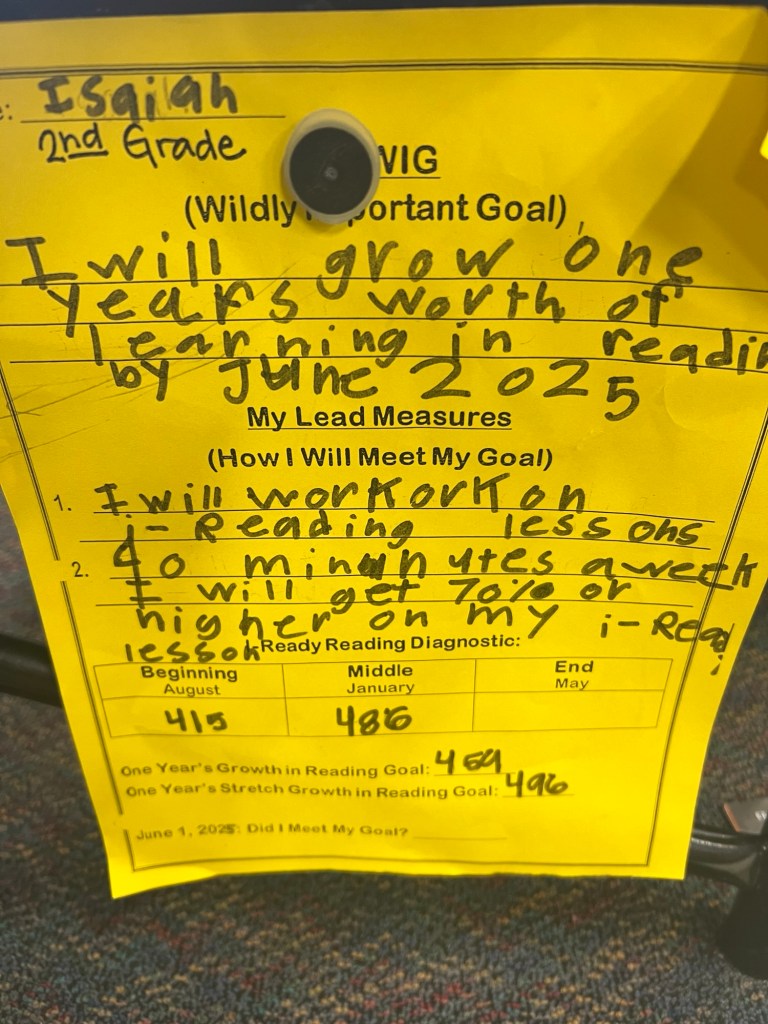 e: Isaiah
2nd Grade
WIG
(Wildly Important Goal)
I will grow one
years worth of
learning in readin
by June 2025
My Lead Measures
(How I Will Meet My Goal)
1. I will workork on
i-Reading lessons
2. 40 minunutes a week
I will get 70% or
higher on my i-Read
lesson
Ready Reading Diagnostic:
Beginning Middle End
August January May
415 486
One Year's Growth in Reading Goal: 464
One Year's Stretch Growth in Reading Goal: 496
June 1, 2025: Did I Meet My Goal?